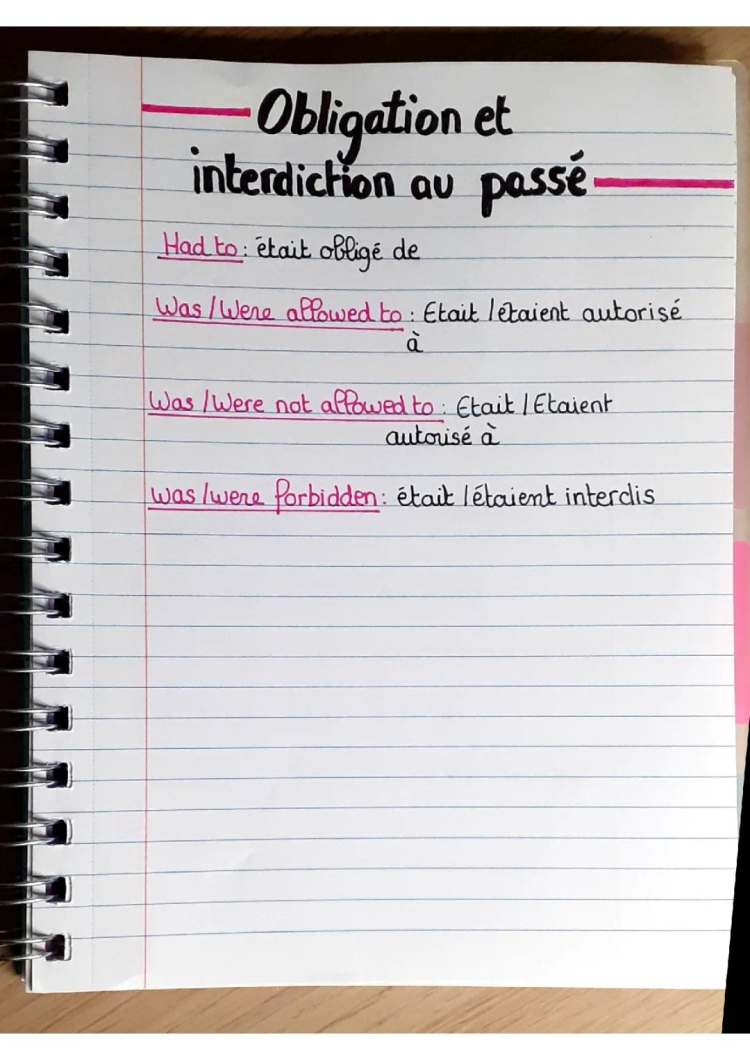 Obligation et
interdiction au passé
Had to : était obligé de
Was / Were allowed to : Etait / étaient autorisé
à
Was / Were not allowed to : Etait / Etaient
autorisé à
was / were forbidden : était / étaient interdis